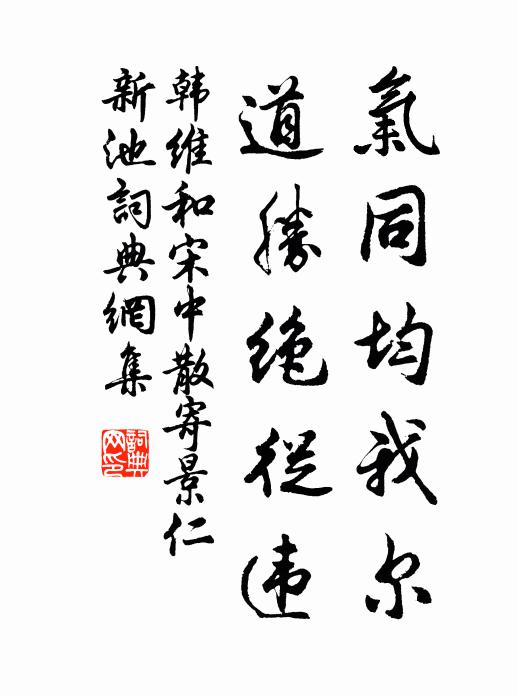 氣同均我尔
道勝絶從违
韩維和宋中散寄景仁
新池詞典網集
詞典网印